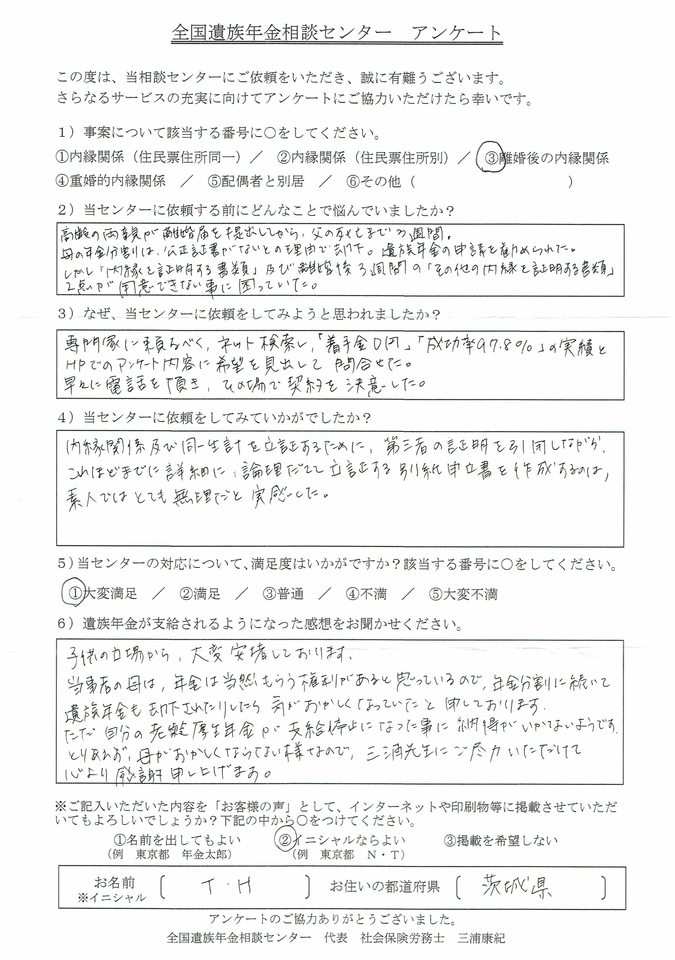 全国遺族年金相談センター　アンケート
この度は、当相談センターにご依頼をいただき、誠に有難うございます。
さらなるサービスの充実に向けてアンケートにご協力いただけたら幸いです。
1）事案について該当する番号に○をしてください。
①内縁関係（住民票住所同一）／　②内縁関係（住民票住所別）／　③離婚後の内縁関係
④重婚的内縁関係　／　⑤配偶者と別居　／　⑥その他（　　　　　　　　　　）
2）当センターに依頼する前にどんなことで悩んでいましたか？
高齢の両親が離婚届を提出してから、父の死亡まで3週間。
母の年金分割りは、公正証書がないとの理由で却下。遺族年金の申請を勧められた。
しかし「内縁を証明する書類」及び離婚後3週間の「その他の内縁を証明する書類」
2点が用意できない事に困っていた。
3）なぜ、当センターに依頼をしてみようと思われましたか？
専門家に頼るべく、ネット検索し、「着手金0円」「成功率97.8%」の実績と
HPでのアンケート内容に希望を見出して問合せた。
早々に電話を頂き、その場で契約を決意した。
4）当センターに依頼をしてみていかがでしたか？
内縁関係及び同一生計を立証するために、第三者の証明を引用しながら、
これほどまでに詳細に、論理だてて立証する別紙申立書を作成するのは、
素人ではとても無理だと実感した。
5）当センターの対応について、満足度はいかがですか？該当する番号に○をしてください。
①大変満足　／　②満足　／　③普通　／　④不満　／　⑤大変不満
6）遺族年金が支給されるようになった感想をお聞かせください。
子供の立場から、大変安堵しております。
当事者の母は、年金は当然もらう権利があると思っているので、年金分割に続いて
遺族年金も却下されたりしたら気がおかしくなっていたと申しております。
ただ自分の老齢厚生年金が支給停止になった事に納得がいかないようです。
とりあえず、母がおかしくならない様なので、三浦先生にご尽力いただけて
心より感謝申し上げます。
※ご記入いただいた内容を「お客様の声」として、インターネットや印刷物等に掲載させていただ
いてもよろしいでしょうか？下記の中から○をつけてください。
①名前を出してもよい　　②イニシャルならよい　　③掲載を希望しない
（例　東京都　年金太郎）　　（例　東京都　N・T）
お名前　〔　T・H　〕　お住いの都道府県　〔　茨城県　〕
※イニシャル
アンケートのご協力ありがとうございました。
全国遺族年金相談センター　代表　社会保険労務士　三浦康紀